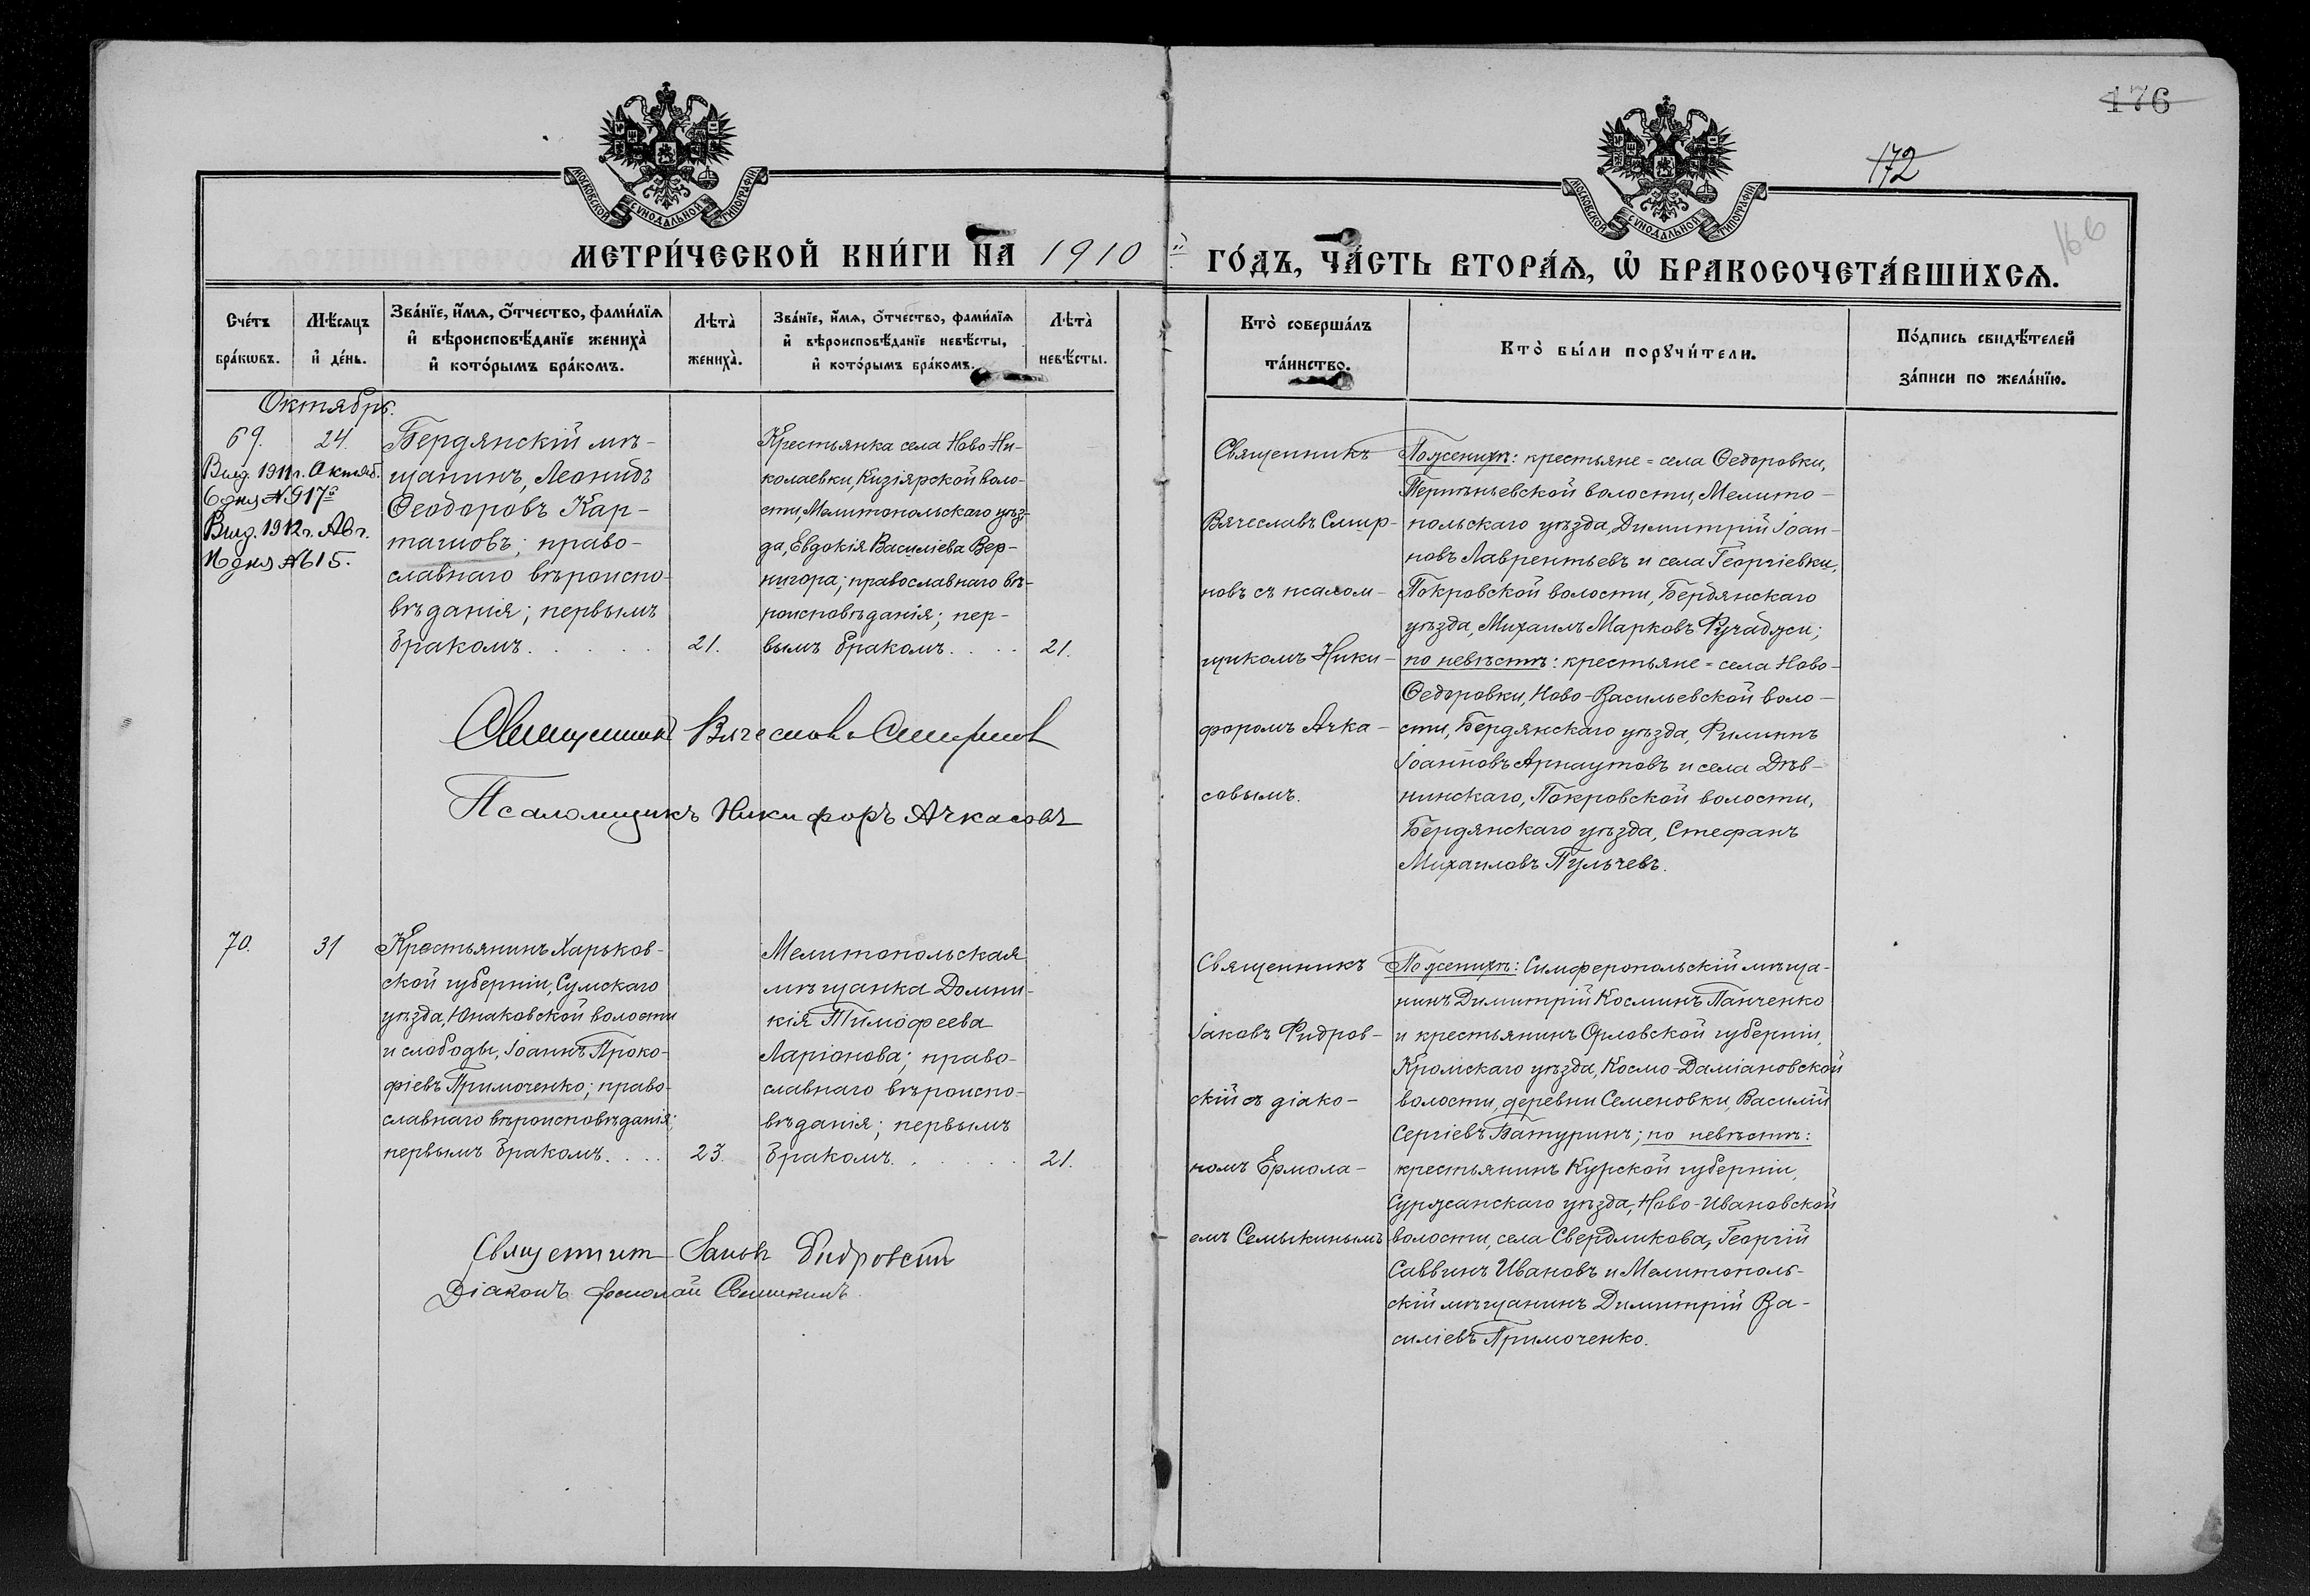 176
172
166
МОСКОВСКОЙ СѴНОДАЛЬНОЙ ТИПОГРАФІИ
МОСКОВСКОЙ СѴНОДАЛЬНОЙ ТИПОГРАФІИ
МЕТРИ́ЧЕСКОЙ КНИ́ГИ НА 1910 й ГО́ДЪ, ЧА́СТЬ ВТОРА́Ѧ, Ѽ БРАКОСОЧЕТА́ВШИХСѦ.
Сче́тъ бра́кѡвъ.
Мѣ́сяцъ и҆ де́нь.
Зва́нїе, и҆́мѧ, ѻ҆́тчество, фами́лїѧ и҆ вѣроисповѣ́данїе жениха̀ и҆ кото́рымъ бра́комъ.
Лѣта̀ жениха̀.
Зва́нїе, и҆́мѧ, ѻ҆́тчество, фами́лїѧ и҆ вѣроисповѣ́данїе невѣ́сты, и҆ кото́рымъ бра́комъ.
Лѣта̀ невѣ́сты.
Кто̀ соверша́лъ та́инство.
Кто̀ бы́ли порꙋчи́тели.
По́дпись свидѣ́телей за́писи по жела́нїю.
Октябрь.
69.
24.
Выд. 1911 г. Октяб.
6 дня №917о
Выд. 1912 г. Авг.
16 дня №615.
Бердянскій мѣ-
щанинъ, Леонидъ
Ѳеодоровъ Кар-
ташовъ; право-
славнаго вѣроиспо-
вѣданія; первымъ
бракомъ. . . . . .
21.
Крестьянка села Ново-Ни-
колаевки, Кизіярской воло-
сти, Мелитопольскаго уѣз-
да, Евдокія Василіева Вер-
нигора; православнаго вѣ-
роисповѣданія; пер-
вымъ бракомъ. . . .
21.
Священникъ
Вячеславъ Смир-
новъ съ псалом-
щикомъ Ники-
форомъ Ачка-
совымъ.
По женихѣ: крестьяне = села Ѳедоровки,
Терпѣньевской волости, Мелито-
польскаго уѣзда, Димитрій Іоан-
новъ Лаврентьевъ и села Георгіевки,
Покровской волости, Бердянскаго
уѣзда, Михаилъ Марковъ Фучаджи;
по невѣстѣ: крестьяне = села Ново-
Ѳедоровки, Ново-Васильевской воло-
сти, Бердянскаго уѣзда, Филиппъ
Іоанновъ Арнаутовъ и села Дѣв-
нинскаго, Покровской волости,
Бердянскаго уѣзда, Стефанъ
Михаиловъ Пульчевъ.
Священникъ Вячеславъ Смирновъ
Псаломщикъ Никифоръ Ачкасовъ
70.
31
Крестьянинъ Харьков-
ской губерніи, Сумскаго
уѣзда, Юнаковской волости
и слободы, Іоаннъ Проко-
фіевъ Примоченко; право-
славнаго вѣроисповѣданія;
первымъ бракомъ. . . .
23.
Мелитопольская
мѣщанка Домни-
кія Тимоѳеева
Ларіонова; право-
славнаго вѣроиспо-
вѣданія; первымъ
бракомъ. . . . . .
21.
Священникъ
Іаковъ Фидров-
скій съ діако-
номъ Ермола-
емъ Семыкинымъ
По женихѣ: Симферопольскій мѣща-
нинъ Димитрій Косминъ Панченко
и крестьянинъ Орловской губерніи,
Кромскаго уѣзда, Космо-Даміановской
волости, деревни Семеновки, Василій
Сергіевъ Батуринъ; по невѣстѣ:
крестьянинъ Курской губерніи,
Суржанскаго уѣзда, Ново-Ивановской
волости, села Свердликова, Георгій
Саввинъ Ивановъ и Мелитополь-
скій мѣщанинъ Димитрій Ва-
силіевъ Примоченко.
Священникъ Іаковъ Фидровскій
Діаконъ Ермолай Семыкинъ.